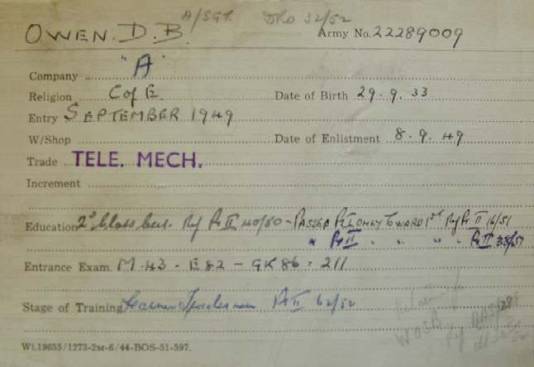 A/SGT. DRO 32/52
OWEN. D. B. Army No. 22289009
Company "A"
Religion C of E. Date of Birth 29.9.33
Entry SEPTEMBER 1949
W/Shop Date of Enlistment 8.9.49
Trade TELE. MECH.
Increment
Education 2nd Class Cert. Ref Pt II 40/50 - PASSED PT I ONLY TOWARD 1st Ref Pt II 16/51
" Pt II " " " Pt II 38/51
Entrance Exam. M 43 - E 82 - GK 86 - 211
Stage of Training Pt II 62/52
WOSB
Wt.19655/1273-2M-6/44-BOS-51-597.